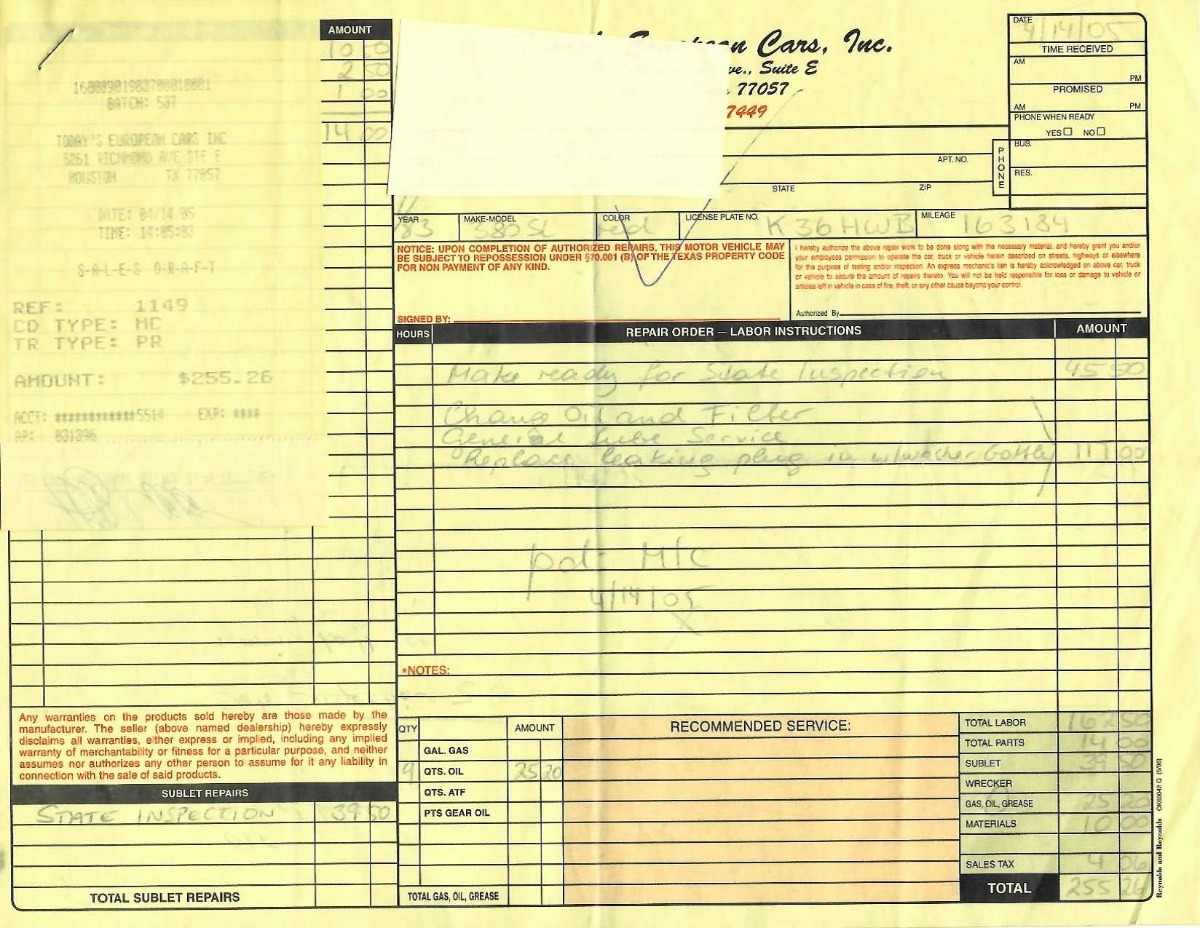 AMOUNT
10 50
2 50
1 00
14 00
BATCH: 507
TODAY'S EUROPEAN CARS INC
6261 RICHMOND AVE STE E
HOUSTON TX 77057
DATE: 04/14/05
TIME: 14:05:03
S-A-L-E-S D-R-A-F-T
REF: 1149
CD TYPE: MC
TR TYPE: PR
AMOUNT: $255.26
ACCT: ************5514 EXP: ****
AP: 031396
European Cars, Inc.
ve., Suite E
77057
7449
DATE 4/14/05
TIME RECEIVED
AM PM
PROMISED
AM PM
PHONE WHEN READY
YES NO
PHONE
BUS.
RES.
APT. NO.
STATE ZIP
YEAR 83 MAKE-MODEL 380SL COLOR red LICENSE PLATE NO. K36HWB MILEAGE 163184
NOTICE: UPON COMPLETION OF AUTHORIZED REPAIRS, THIS MOTOR VEHICLE MAY
BE SUBJECT TO REPOSSESSION UNDER §70.001 (B) OF THE TEXAS PROPERTY CODE
FOR NON PAYMENT OF ANY KIND.
SIGNED BY:
I hereby authorize the above repair work to be done along with the necessary material, and hereby grant you and/or
your employees permission to operate the car, truck or vehicle herein described on streets, highways or elsewhere
for the purpose of testing and/or inspection. An express mechanic's lien is hereby acknowledged on above car, truck
or vehicle to secure the amount of repairs thereto. You will not be held responsible for loss or damage to vehicle or
articles left in vehicle in case of fire, theft, or any other cause beyond your control.
Authorized By
HOURS REPAIR ORDER – LABOR INSTRUCTIONS AMOUNT
Make ready for State Inspection 45 50
Change Oil and Filter
General Lube Service
Replace leaking plug in w/washer bottle 117 00
pd- M/C
4/14/05
X
*NOTES:
Any warranties on the products sold hereby are those made by the
manufacturer. The seller (above named dealership) hereby expressly
disclaims all warranties, either express or implied, including any implied
warranty of merchantability or fitness for a particular purpose, and neither
assumes nor authorizes any other person to assume for it any liability in
connection with the sale of said products.
SUBLET REPAIRS
STATE INSPECTION 39 50
TOTAL SUBLET REPAIRS
QTY AMOUNT
GAL. GAS
9 QTS. OIL 25 20
QTS. ATF
PTS GEAR OIL
TOTAL GAS, OIL, GREASE
RECOMMENDED SERVICE:
TOTAL LABOR 162 50
TOTAL PARTS 14 00
SUBLET 39 50
WRECKER
GAS, OIL, GREASE 25 20
MATERIALS 10 00
SALES TAX 4 06
TOTAL 255 26
Reynolds and Reynolds